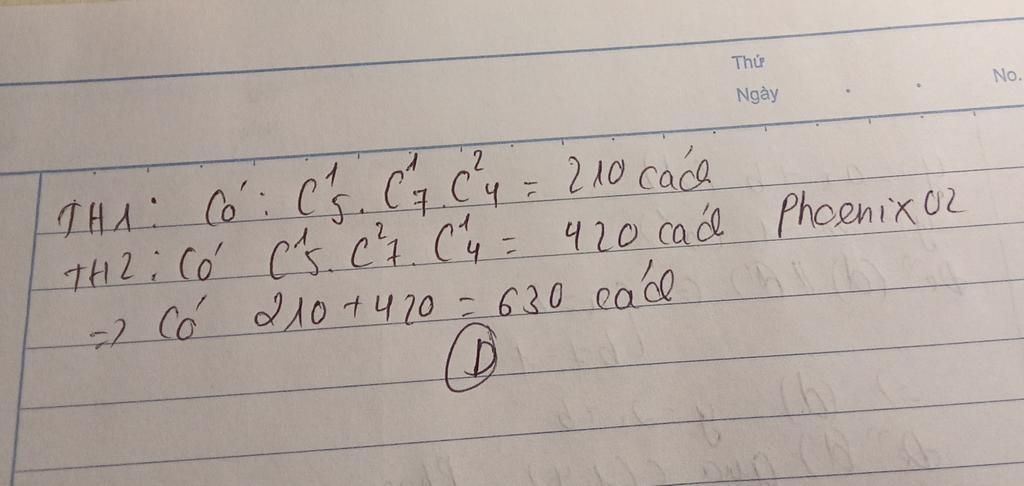 Thứ
Ngày
No.
TH1: Có: C¹₅. C¹₇. C²₄ = 210 cách
TH2: Có C¹₅. C²₇. C¹₄ = 420 cách Phoenix02
=> Có 210 + 420 = 630 cách
D